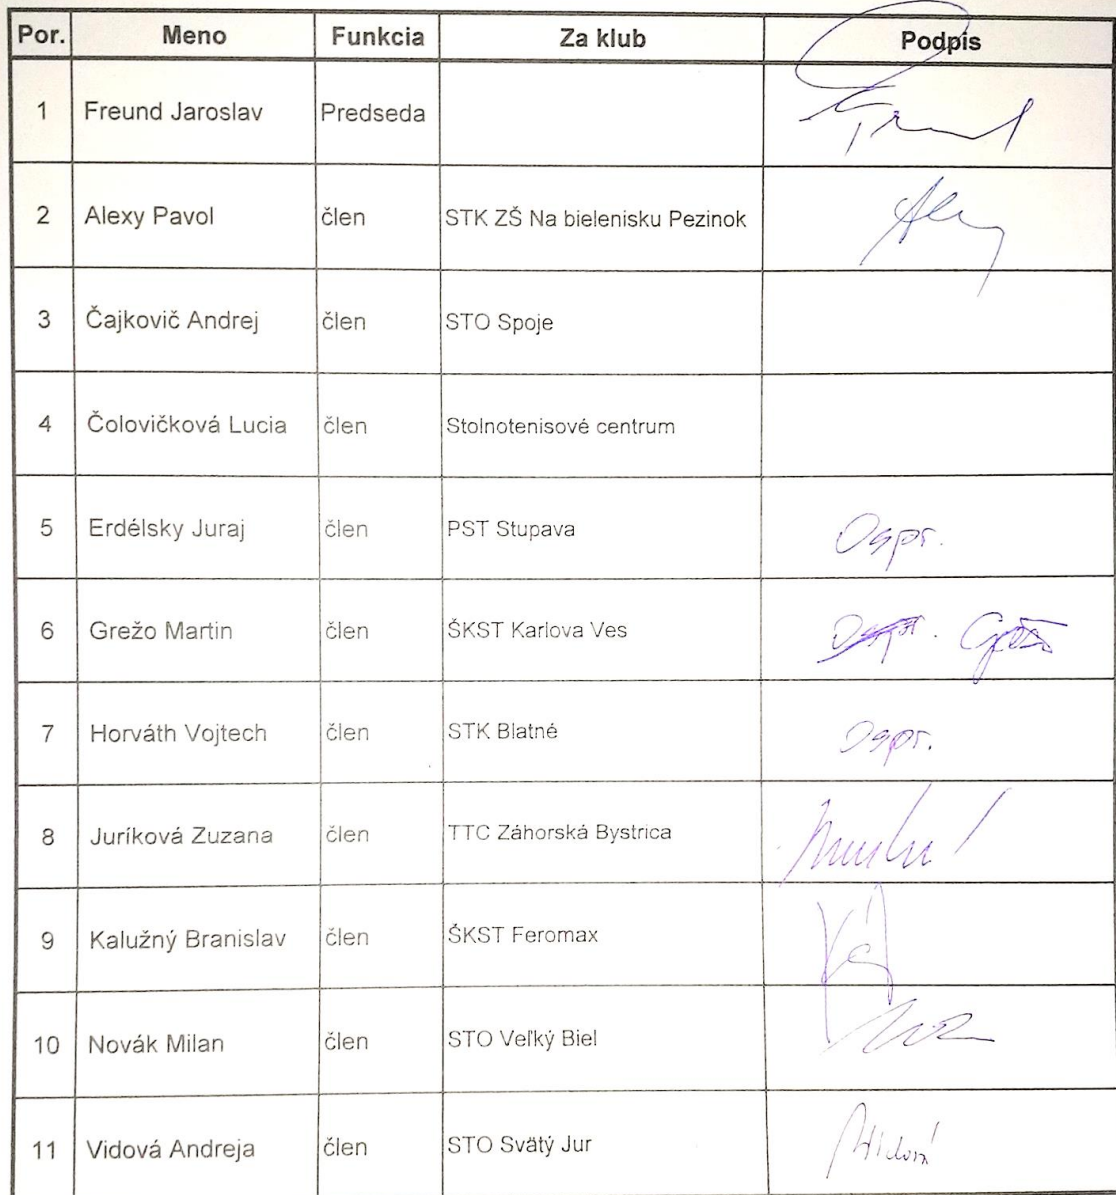 Por. Meno Funkcia Za klub Podpis
1 Freund Jaroslav Predseda
2 Alexy Pavol člen STK ZŠ Na bielenisku Pezinok
3 Čajkovič Andrej člen STO Spoje
4 Čolovičková Lucia člen Stolnotenisové centrum
5 Erdélsky Juraj člen PST Stupava Ospr.
6 Grežo Martin člen ŠKST Karlova Ves
7 Horváth Vojtech člen STK Blatné Ospr.
8 Juríková Zuzana člen TTC Záhorská Bystrica
9 Kalužný Branislav člen ŠKST Feromax
10 Novák Milan člen STO Veľký Biel
11 Vidová Andreja člen STO Svätý Jur Vidová